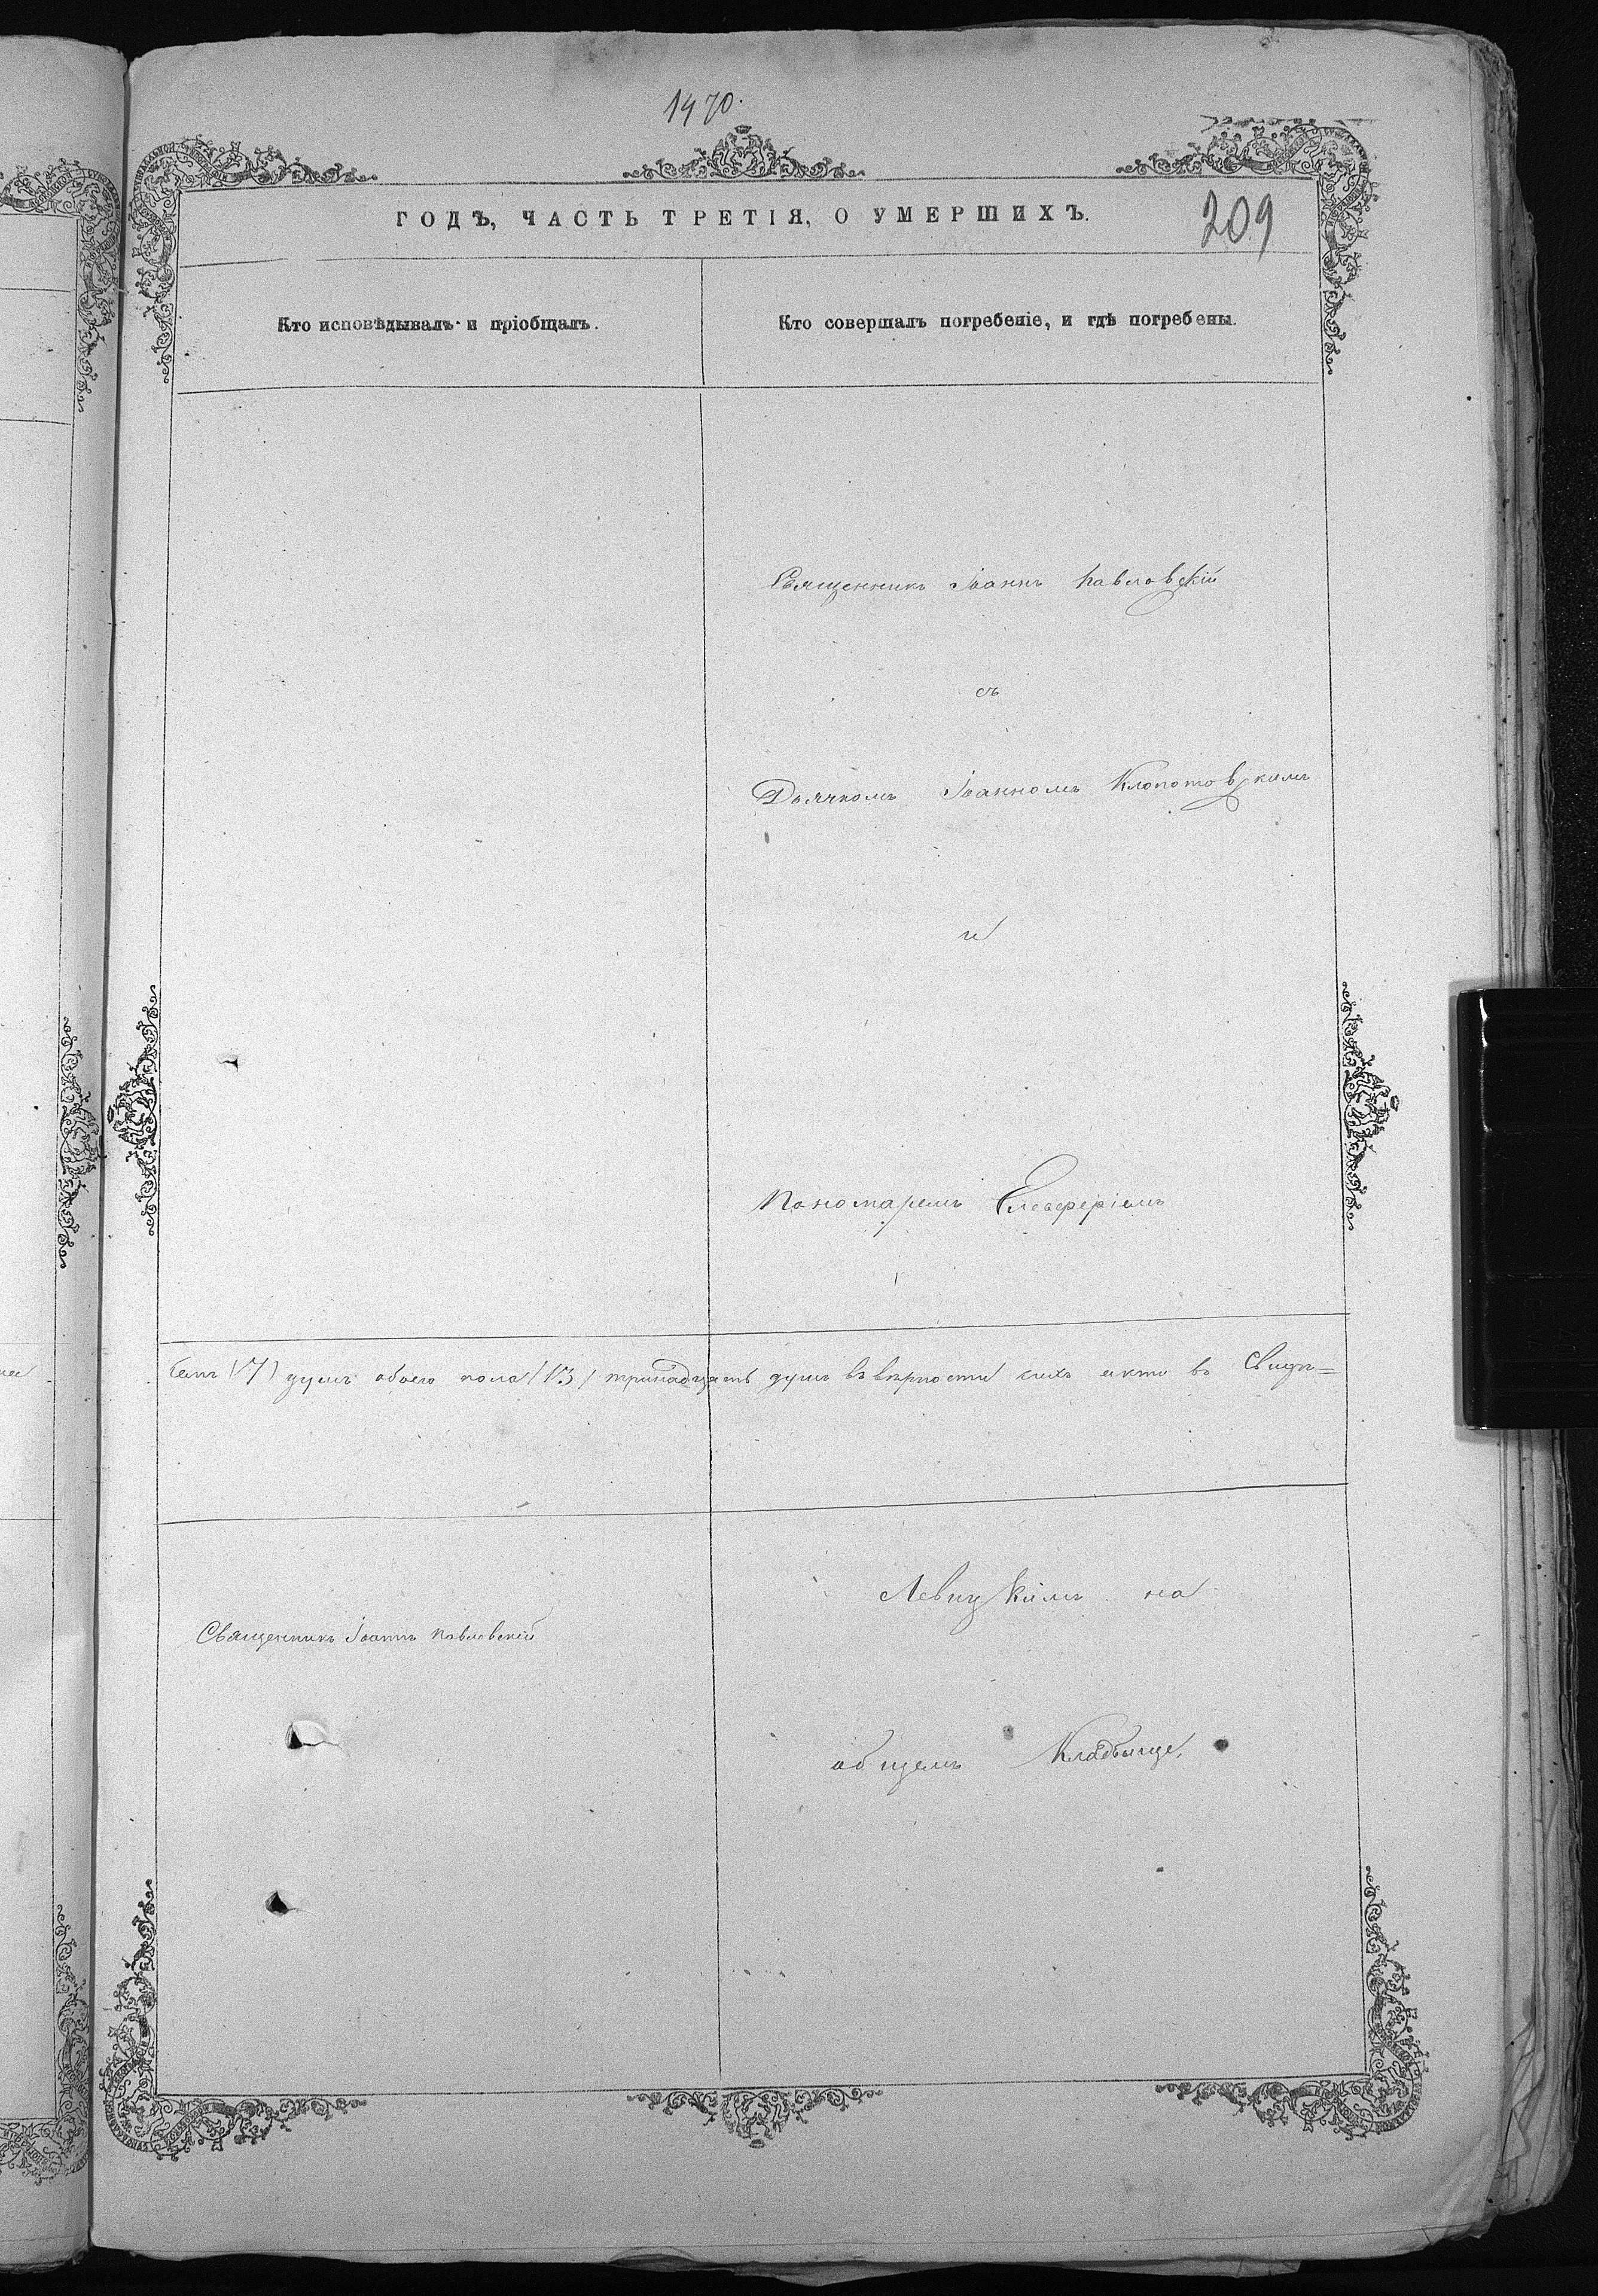 1470.
209
ГОДЪ, ЧАСТЬ ТРЕТІЯ, О УМЕРШИХЪ.
Кто исповѣдывалъ и пріобщалъ.
Кто совершалъ погребеніе, и гдѣ погребены.
Священникъ Іоаннъ Павловскій
съ
Дьячкомъ Іоанномъ Клопотовскимъ
и
Пономаремъ Елевферіемъ
семь (7) душъ обоего пола (13) тринадцать душъ въ вѣрности сихъ акто въ Свидѣ=
Левицкимъ на
Священникъ Іоаннъ Павловскій
общемъ Кладбище.